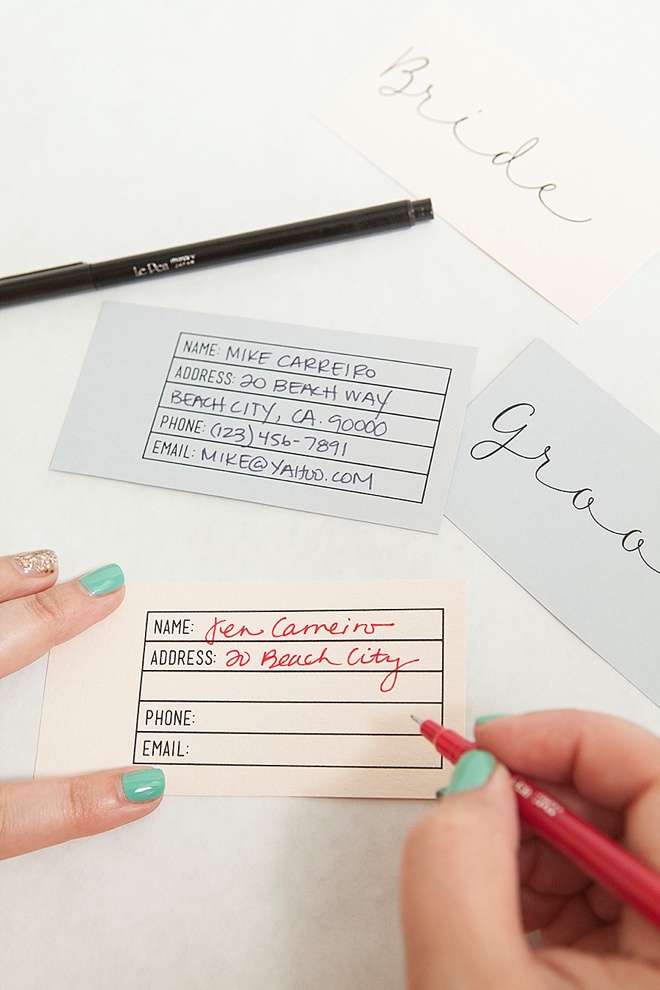 Bride
Le Pen
NAME: MIKE CARREIRO
ADDRESS: 20 BEACH WAY
BEACH CITY, CA. 90000
PHONE: (123) 456-7891
EMAIL: MIKE@YAHOO.COM
Groo
NAME: Jen Carreiro
ADDRESS: 20 Beach City
PHONE:
EMAIL: